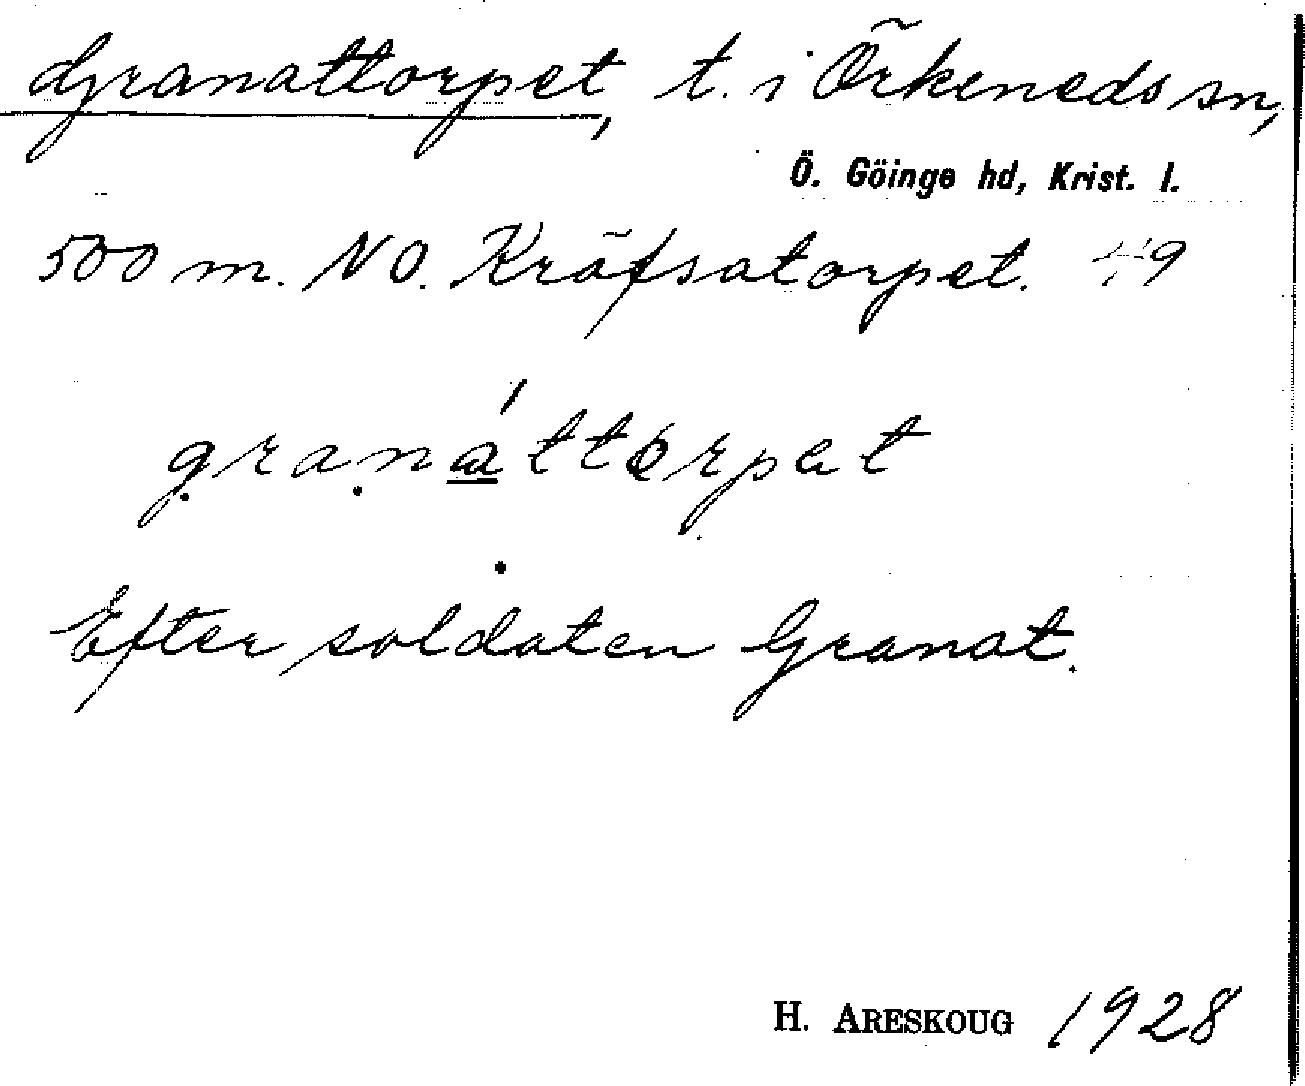 Granattorpet, t. i Örkeneds sn,
Ö. Göinge hd, Krist. l.
500 m. NO. Kräfsatorpet. 49
granáttorpet
Efter soldaten Granat.
H. ARESKOUG 1928